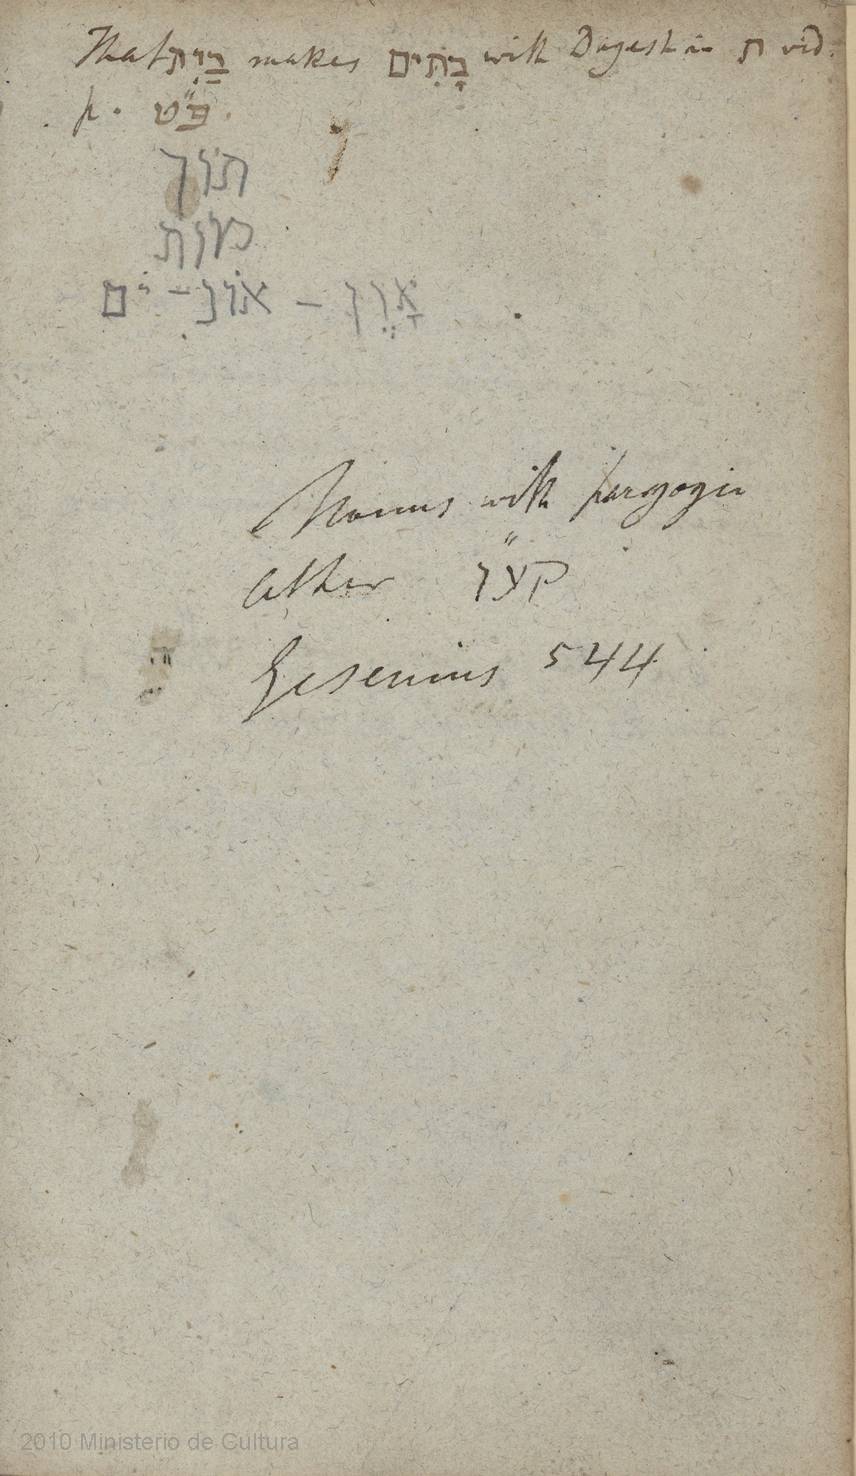 That בַּיִת makes בָּתִּים with Dagesh in ת vid.
p. בּ"ט.
תוֹך
מות
אָוֶן - אוֹנ - ים
Nouns with
other קצ"ר
Gesenius 544
2010 Ministerio de Cultura